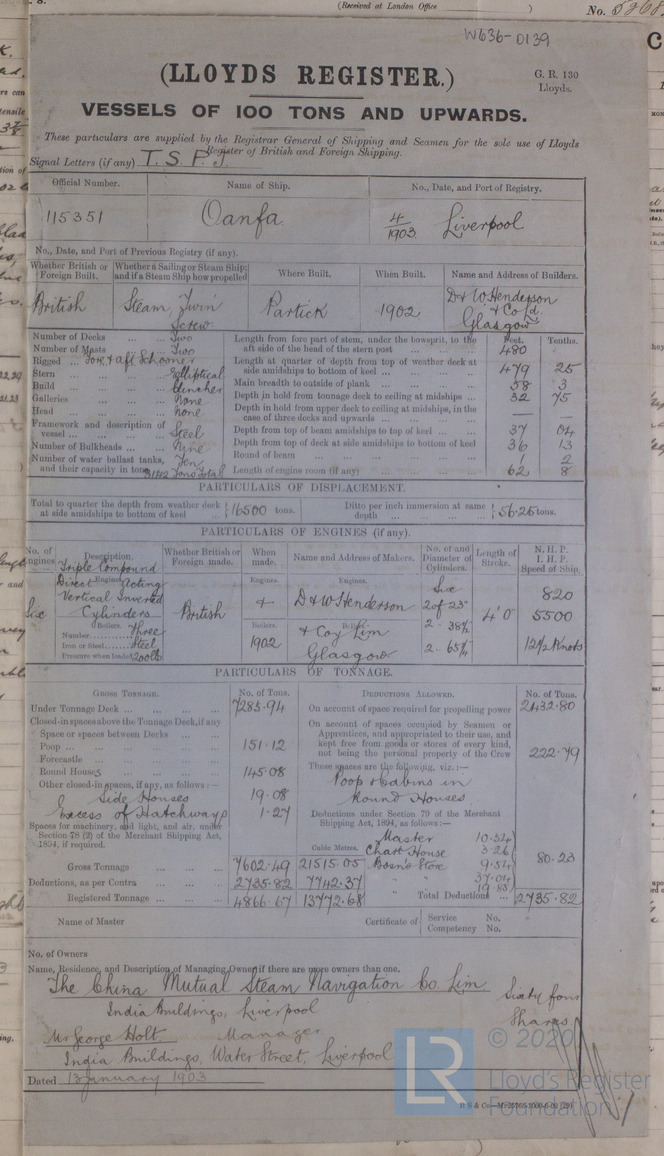 (Received at London Office
No. 5268
W636-0139
(LLOYDS REGISTER.)
G. R. 130
Lloyds.
VESSELS OF 100 TONS AND UPWARDS.
These particulars are supplied by the Registrar General of Shipping and Seamen for the sole use of Lloyds
Register of British and Foreign Shipping.
Signal Letters (if any) T. S. F. J.
Official Number. Name of Ship. No., Date, and Port of Registry.
115351 Oanfa 4/1903 Liverpool
No., Date, and Port of Previous Registry (if any).
Whether British or Foreign Built. Whether a Sailing or Steam Ship; and if a Steam Ship how propelled Where Built. When Built. Name and Address of Builders.
British Steam Twin Screw Partick 1902 D & W Henderson & Co Ld. Glasgow
Number of Decks Two
Number of Masts Two
Rigged Fore & aft Schooner
Stern Elliptical
Build Clencher
Galleries None
Head None
Framework and description of vessel Steel
Number of Bulkheads Nine
Number of water ballast tanks, and their capacity in tons Ten Tons Total
Feet. Tenths.
Length from fore part of stem, under the bowsprit, to the aft side of the head of the stern post 480
Length at quarter of depth from top of weather deck at side amidships to bottom of keel 479 25
Main breadth to outside of plank 58 3
Depth in hold from tonnage deck to ceiling at midships 32 75
Depth in hold from upper deck to ceiling at midships, in the case of three decks and upwards — —
Depth from top of beam amidships to top of keel 37 04
Depth from top of deck at side amidships to bottom of keel 36 13
Round of beam 1 2
Length of engine room (if any) 62 8
PARTICULARS OF DISPLACEMENT.
Total to quarter the depth from weather deck at side amidships to bottom of keel 16500 tons. Ditto per inch immersion at same depth 56.26 tons.
PARTICULARS OF ENGINES (if any).
No. of Engines. Description. Whether British or Foreign made. When made. Name and Address of Makers. No. of and Diameter of Cylinders. Length of Stroke. N. H. P. I. H. P. Speed of Ship.
Six Triple Compound
Direct Acting
Vertical Inverted
Cylinders
British
Engines.
Boilers.
1902
Engines.
D & W Henderson
& Coy Lim
Glasgow
Six
2 of 23"
2 - 38½
2 - 65¼
4' 0"
820
5500
12½ Knots
Boilers.
Number Three
Iron or Steel Steel
Pressure when loaded 200lb
PARTICULARS OF TONNAGE.
GROSS TONNAGE. No. of Tons.
Under Tonnage Deck 7285.94
Closed-in spaces above the Tonnage Deck, if any
Space or spaces between Decks
Poop 151.12
Forecastle
Round Houses 145.08
Other closed-in spaces, if any, as follows:—
Side Houses 19.08
Excess of Hatchways 1.27
Spaces for machinery, and light, and air, under Section 78 (2) of the Merchant Shipping Act, 1894, if required.
Cubic Metres.
Gross Tonnage 7602.49 21515.05
Deductions, as per Contra 2735.82 7742.37
Registered Tonnage 4866.67 13772.68
DEDUCTIONS ALLOWED. No. of Tons.
On account of space required for propelling power 2432.80
On account of spaces occupied by Seamen or Apprentices, and appropriated to their use, and kept free from goods or stores of every kind, not being the personal property of the Crew 222.79
These spaces are the following, viz.:—
Poop & Cabins in
Round Houses
Deductions under Section 79 of the Merchant Shipping Act, 1894, as follows:—
Master 10.54
Chart House 3.26
Bosn's Store 9.54
" " 37.04
19.85
80.23
Total Deductions 2735.82
Name of Master Certificate of Service No. Competency No.
No. of Owners
Name, Residence, and Description of Managing Owner if there are more owners than one.
The China Mutual Steam Navigation Co Lim
India Buildings, Liverpool
Sixty four
Shares
Mr George Holt Manager
India Buildings, Water Street, Liverpool
Dated 13 January 1903
© 2020
LR
Lloyd's Register
Foundation